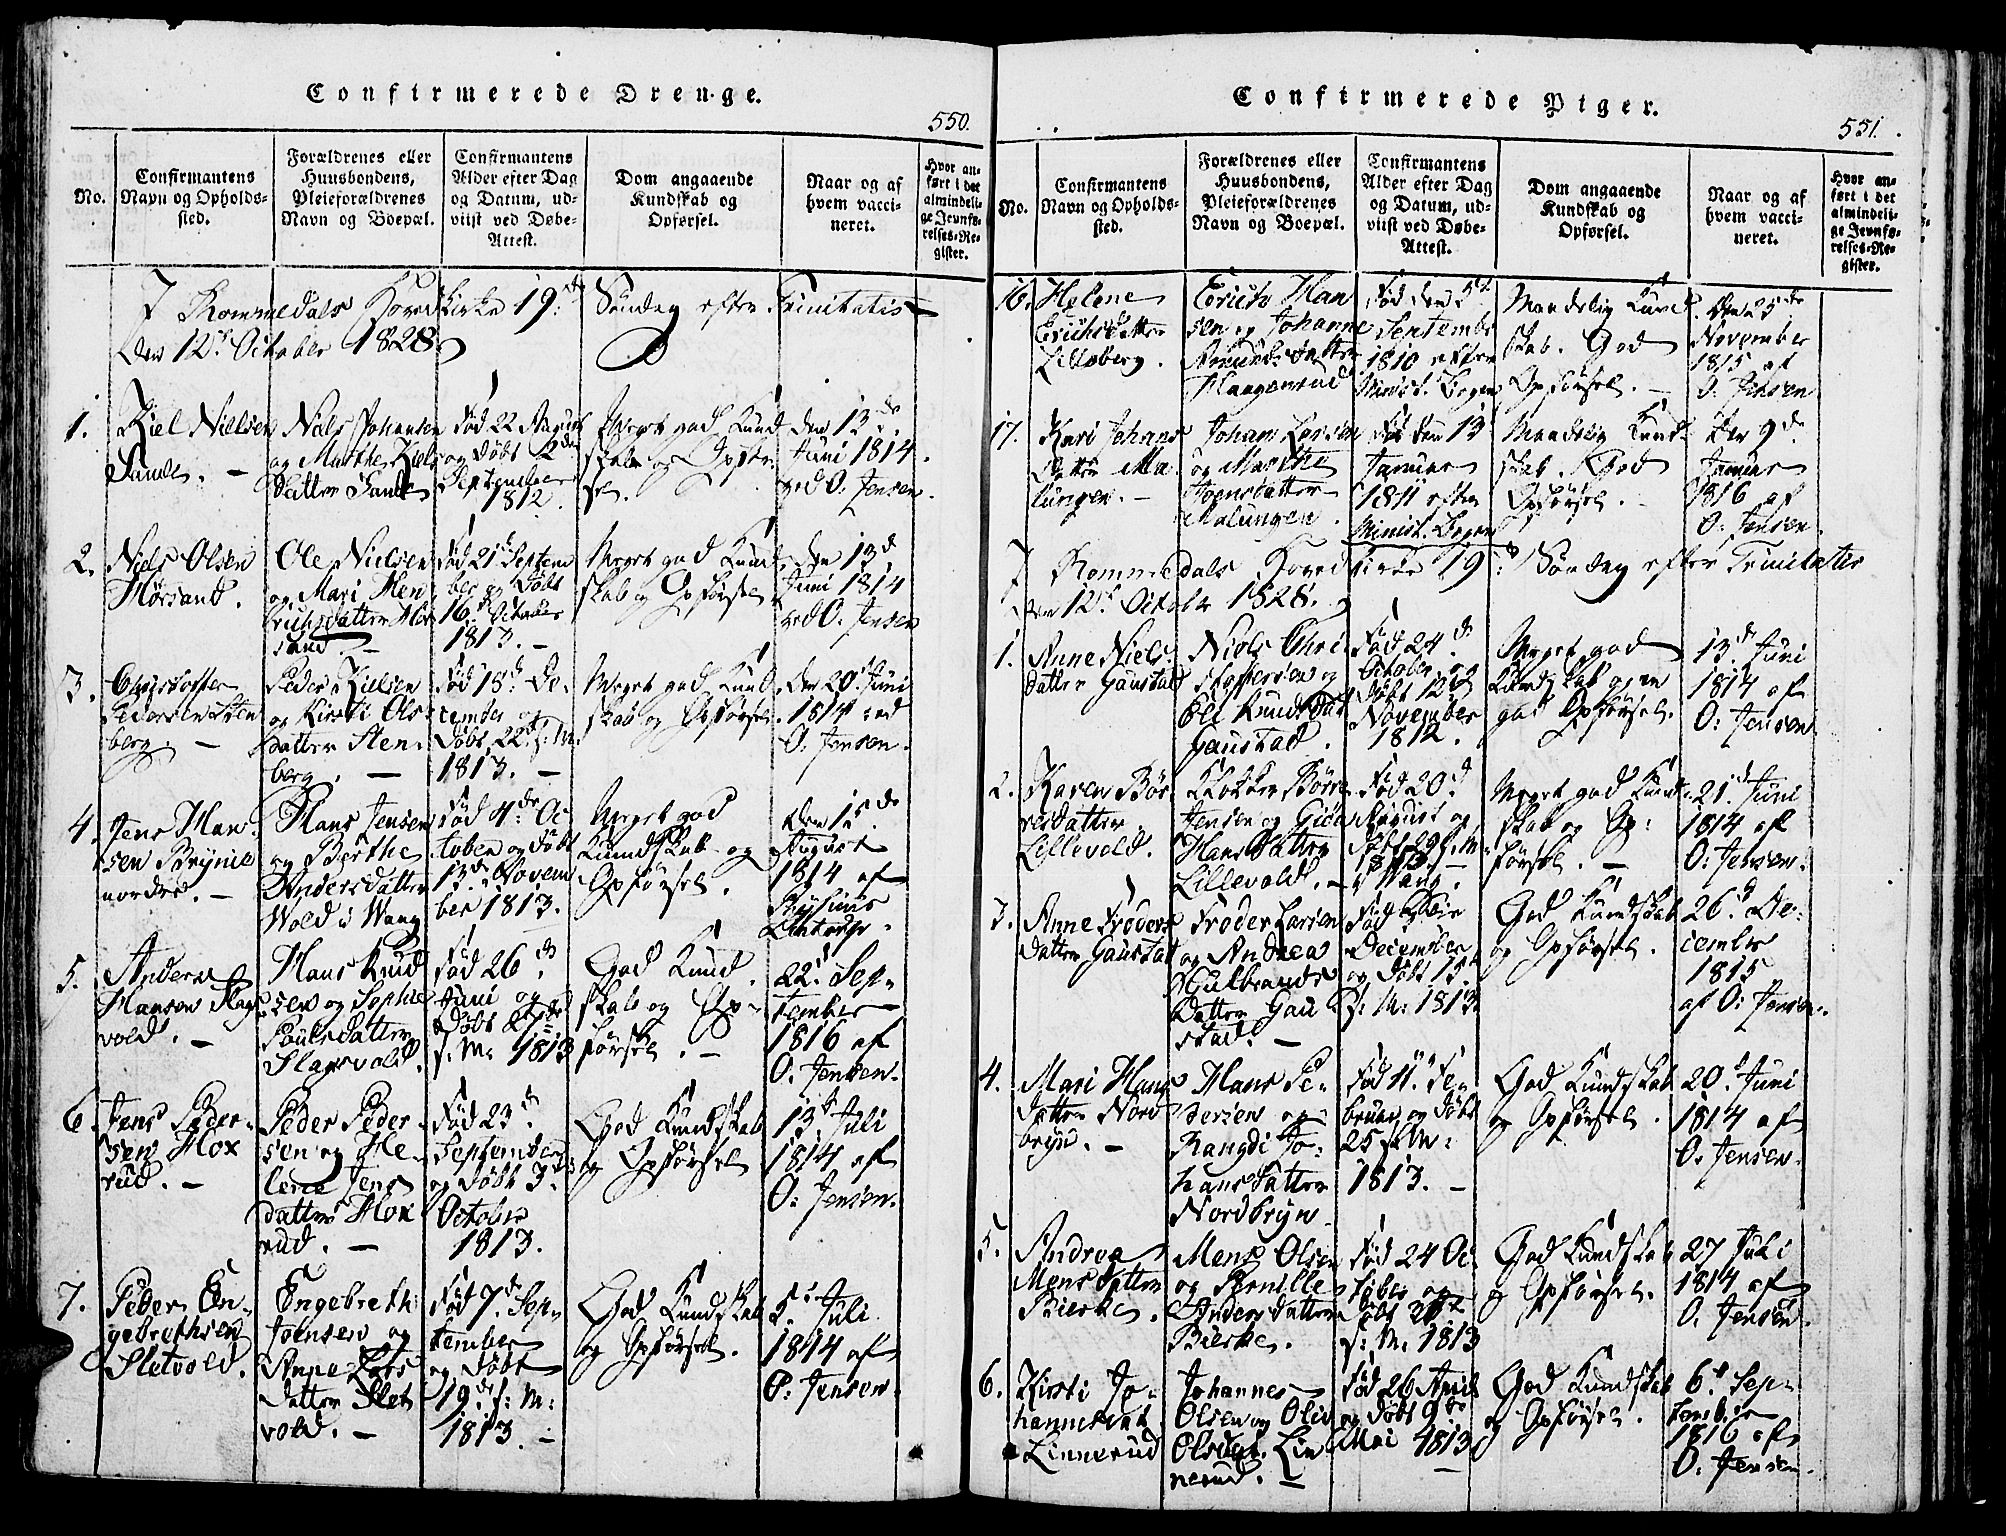 Confirmerede Drenge.
550.
No.
Confirmantens
Navn og Opholds-
sted.
Forældrenes eller
Huusbondens,
Pleieforældrenes
Navn og Boepæl.
Confirmantens
Alder efter Dag
og Datum, ud-
viist ved Døbe-
Attest.
Dom angaaende
Kundskab og
Opførsel.
Naar og af
hvem vacci-
neret.
Hvor an-
ført i det
almindeli-
ge Jevnfø-
relses-Re-
gister.
I Rommedals Hovedkirke 19de Søndag efter Trinitatis
den 12te October 1828
1.
Kiel Nielsen
Sande. –
Niels Johansen
og Marthe Kiels
datter Sande
Fød 22 August
og døbt 2den
September
1812.
Meget god Kund
skab og Opfør-
sel.
den 13de
Juni 1814
ved O: Jensen.
2.
Niels Olsen
Hørsand.
Ole Nielsen
og Mari Hen
richsdatter Hør
sand. –
Fød 21d Septem
ber og døbt
16d October
1813. –
Meget god Kund
skab og Opførsel
den 13d
Juni 1814
ved O: Jensen
3.
Christopher
Pedersen Sten
berg. –
Peder Kielsen
og Kirsti Ols
datter Sten-
berg. –
Fød 18d De-
cember og
døbt 22d s: M:
1813. –
Meget god Kund
skab og Opførsel
den 20d Juni
1814 ved
O: Jensen.
4.
Jens Han-
sen Brynie
nordre. –
Hans Jensen
og Berthe
Andersdatter
Wold i Wang
Fød 4de Oc
tober og døbt
13de Novem
ber 1813.
Meget god
Kundskab og
Opførsel.
den 15de
August
1814 af
5.
Anders
Hansen Slags
vold. –
Hans Knud
sen og Sophie
Poulsdatter
Slagsvold.
Fød 26d
Juni og
døbt
s: M: 1813
God Kund
skab og Op-
førsel. –
22d Sep-
tember
1816 af
O. Jensen.
6.
Jens Peder-
sen Hox
rud. –
Peder Peder
sen og He-
lene Jens
datter Hox
rud. –
Fød 23d
September
og døbt 3d
October
1813.
God Kundskab
og Opførsel
13d Juli
1814 af
O: Jensen.
7.
Peder En-
gebrethsen
Sletvold.
Engebreth
Joensen og
Anne Lars
datter Slet
vold. –
Fød 7d Sep-
tember
og døbt
19de s: M:
1813. –
God Kundskab
og Opførsel.
5d Juli
1814 af
O: Jensen.
Confirmerede Piger.
551.
No.
Confirmantens
Navn og Opholds-
sted.
Forældrenes eller
Huusbondens,
Pleieforældrenes
Navn og Boepæl.
Confirmantens
Alder efter Dag
og Datum, ud-
viist ved Døbe-
Attest.
Dom angaaende
Kundskab og
Opførsel.
Naar og af
hvem vacci-
neret.
Hvor an-
ført i det
almindeli-
ge Jevnfø-
relses-Re-
gister.
16.
Helene
Erichsdatter
Lilleberg.
Erich Han
sen og Johanne
Amundsdatter
Haugenrud
Fød den 5d
Septembr
1810 efter
Minist. Bogen
Maadelig Kund
skab. God
Opførsel. –
den 25de
November
1815 af
O. Jensen
17.
Kari Johans
datter Ma
lungen. –
Johan Larsen
og Marthe
Joensdatter
Malungen.
Fød den 13
Januar
1811 efter
Minist. Bogen
Maadelig Kund-
skab. God
Opførsel.
den 9d
Januar
1816 af
O: Jensen
I Rommedals Hovedkirke 19de Søndag efter Trinitatis
den 12te October 1828.
1.
Anne Niels-
datter Gaustad
Niels Chri
stophersen og
Eli Knudsdat
Gaustad.
Fød 24de
October og
døbt 12d
November
1812.
Meget god
Kundskab og en
god Opførsel.
13de Juni
1814 af
O: Jensen
2.
Karen Bør
resdatter
Lillevold.
Klokker Børre
Jensen og Giøa
Hansdatter
Lillevold. –
Fød 20d
August og
døbt 29 s: M:
1813 –
i Wang.
Meget god Kund
skab og Op-
førsel. –
21de Juni
1814 af
O: Jensen.
3.
Anne Frøders
datter Gaustad
Frøder Larsen
og Andrea
Gulbrands
datter Gau
stad. –
Fød
December
og døbt 15d
s: M: 1813
God Kundskab
og Opførsel.
26d De-
cember
1815
af O: Jensen.
4.
Mari Hans
datter Nord
bryn. –
Hans Pe-
dersen og
Rangdi Jo-
hansdatter
Nordbryn
Fød 11d Fe-
bruar og døbt
25 s: M:
1813. –
God Kundskab
og Opførsel.
20d Juni
1814 af
O. Jensen.
5.
Andrea
Mensdatter
Bierke.
Mens Olsen
og Pernille
Andersdatter
Bierke.
Fød 24 Oc
tober og
døbt
s: M: 1813
God Kundskab
og Opførsel.
27 Juli
1814 af
O. Jensen.
6.
Kirsti Jo-
hannesdat.
Linnerud
Johannes
Olsen og Oliv
Olsdat. Lin
nerud. –
Fød 26 April
og døbt 9de
Mai 1813
God Kundskab
og Opførsel.
6d Sep-
tember
1816 af
O. Jensen.